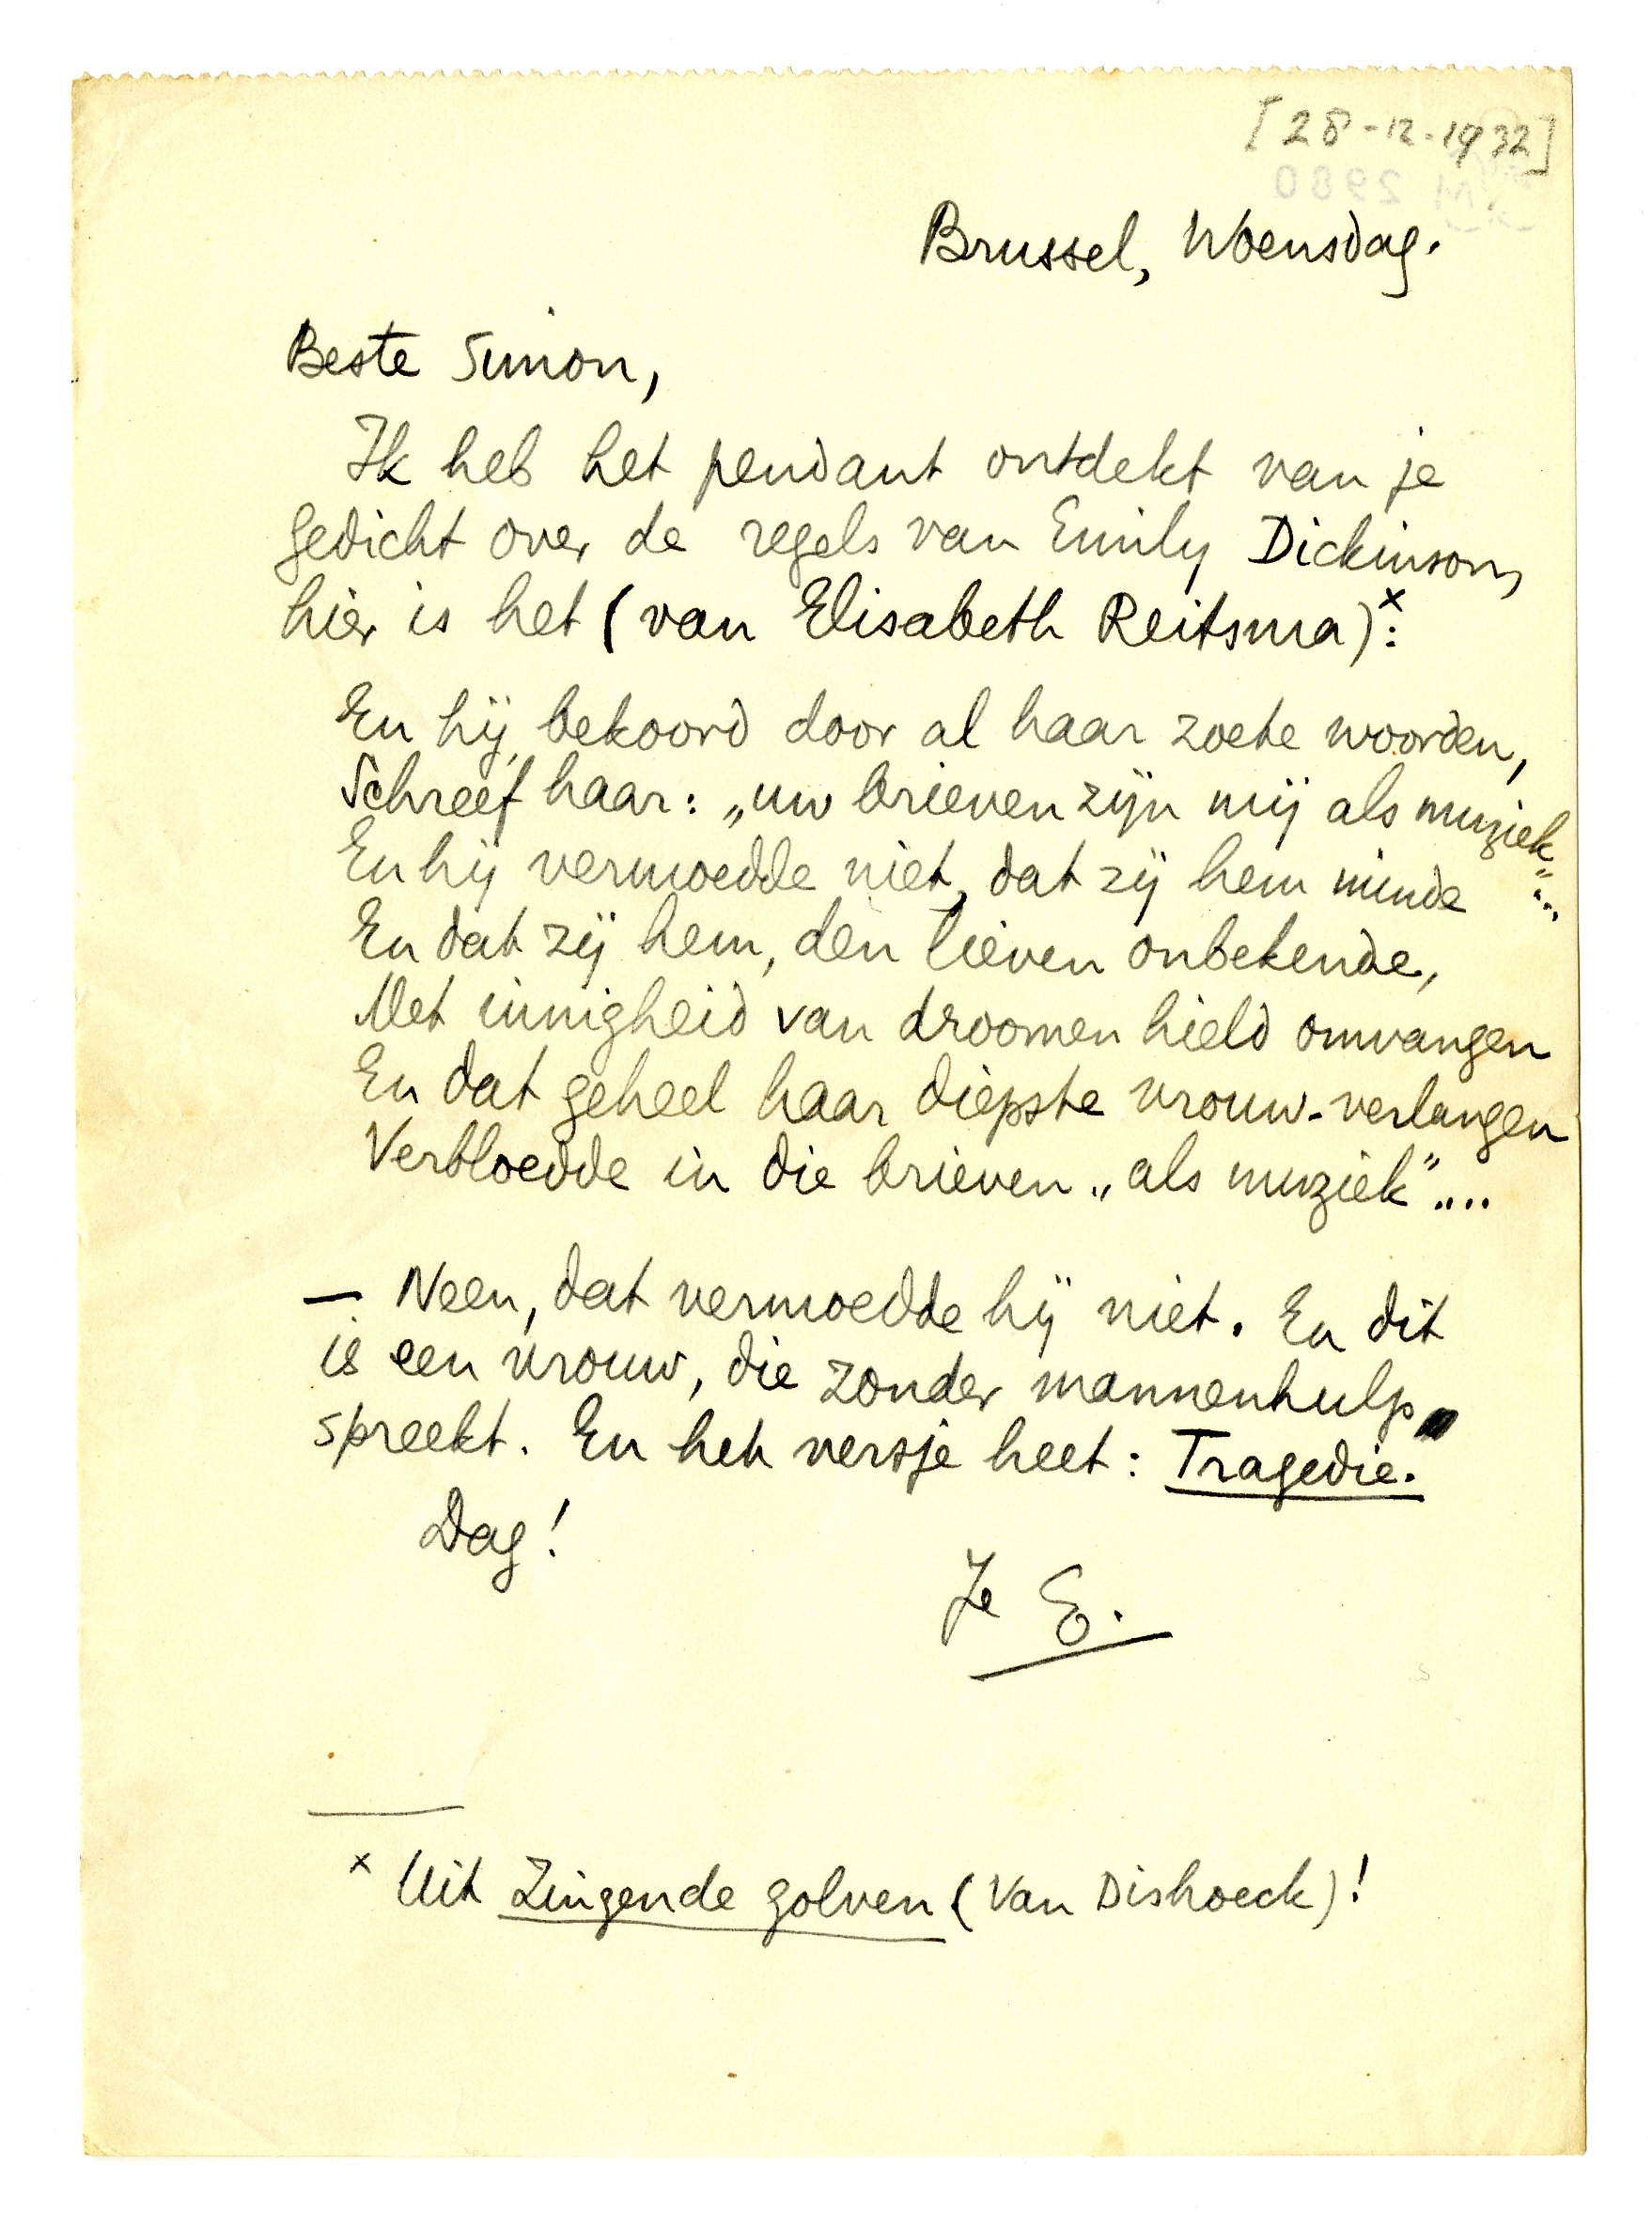 [28-12-1932]
Brussel, Woensdag.
Beste Simon,
Ik heb het pendant ontdekt van je
gedicht over de regels van Emily Dickinson,
hier is het (van Elisabeth Reitsma)ˣ:
En hij, bekoord door al haar zoete woorden,
Schreef haar: „uw brieven zijn mij als muziek"...
En hij vermoedde niet, dat zij hem minde
En dat zij hem, den lieven onbekende,
Met innigheid van droomen hield omvangen
En dat geheel haar diepste vrouw-verlangen
Verbloedde in die brieven „als muziek"....
— Neen, dat vermoedde hij niet. En dit
is een vrouw, die zonder mannenhulp
spreekt. En het versje heet: Tragedie.
Dag!
Je E.
ˣ Uit Zingende golven (Van Dishoeck)!